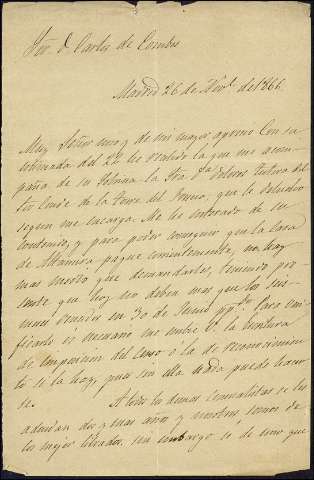 Sor. D. Carlos de
Madrid 26 de Novbe. de 1866.
Muy Señor mio y de mi mayor aprecio Con su
estimada del 22 he recibido la que me acom-
paña de su Sobrina la Sra. Da. Dolores Tutora del
Sor. Conde de la Torre del que le devuelvo
segun me encarga. Me he enterado de su
contenido, y para poder conseguir que la Casa
de Altamira pague corrientemente, no hay
mas medio que demandarla, teniendo pre-
sente que hoy no deben mas que los
en 30 de Junio pp. Para
ficado es necesario me envie V. la escritura
de imposicion del Censo ó la de reconocimien-
to si la hay, pues sin ella nada puede hacer
se. A todos los demas Censualistas se les
adeudan dos y mas años y nosotros somos de
los mejor librados. sin embargo si de creer que